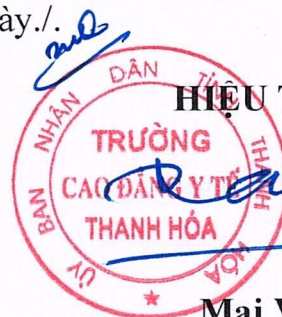 ày./.
HIỆU T
ỦY BAN NHÂN DÂN TỈNH THANH HÓA
TRƯỜNG
CAO ĐẲNG Y TẾ
THANH HÓA
Mai V